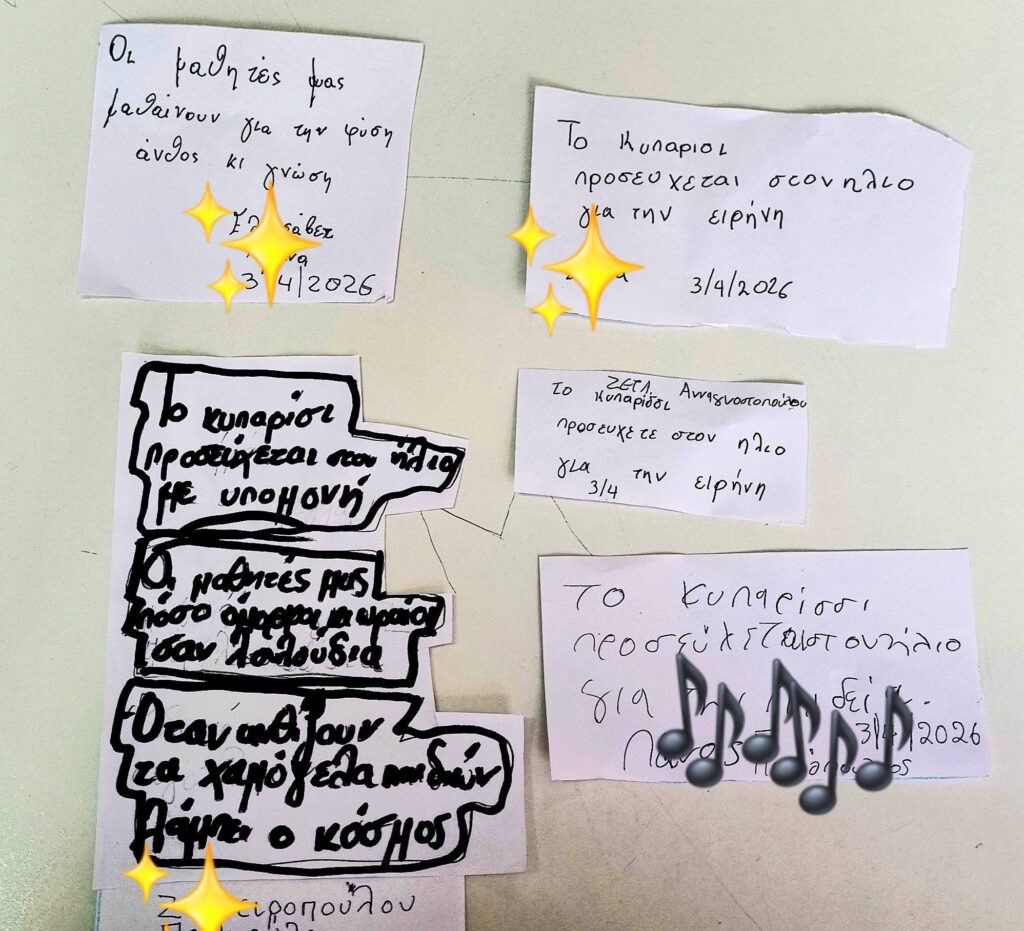 Οι μαθητές μας
μαθαίνουν για την φύση
άνθος κι γνώση
3/4/2026
Το Κυπαρισι
προσευχεται στον ηλιο
για την ειρήνη
3/4/2026
Το κυπαρίσι
προσεύχεται στον ήλιο
με υπομονή
Οι μαθητές μας
πόσο όμορφοι και ωραίοι
σαν λουλούδια
Όταν ανθίζουν
τα χαμόγελα παιδιών
λάμπει ο κόσμος
ΖΕΤΑ Αναγνοστοπούλου
το κυπαρίσσι
προσευχετε στον ηλιο
για την ειρήνη
3/4
Το κυπαρίσσι
προσεύχεται στον ήλιο
για
3/4/2026